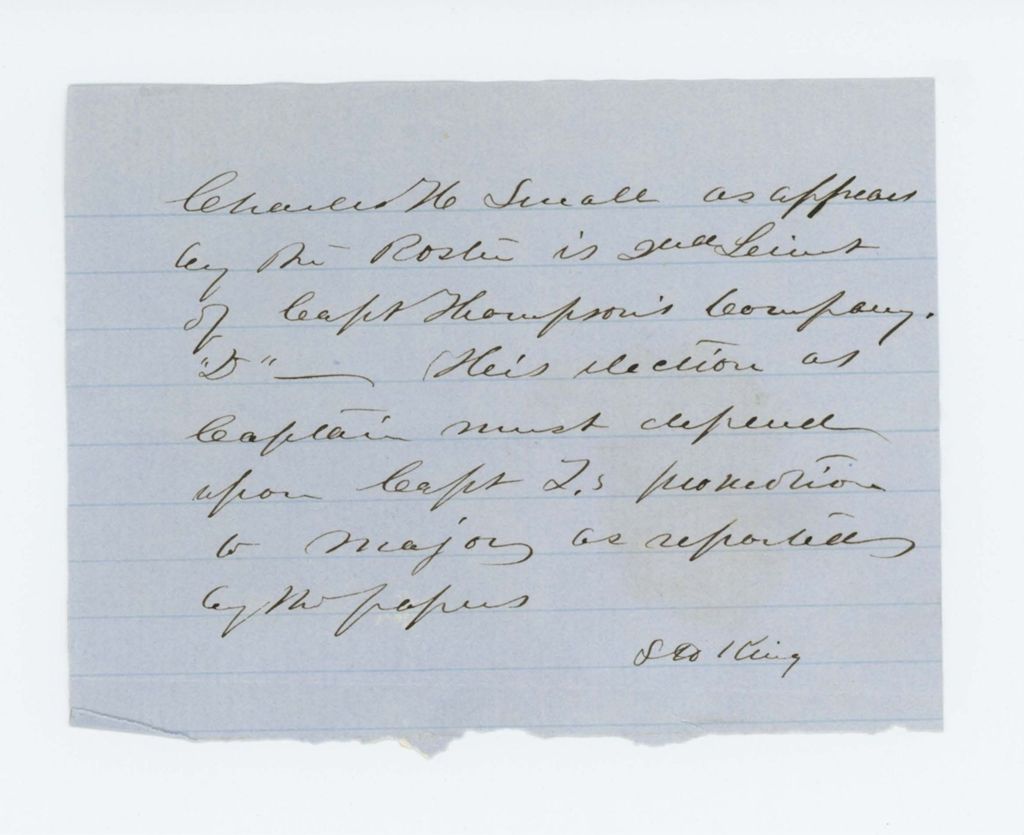 Charles H Small as appears
by the Roster is 2nd Leiut
of Capt Thompson's Company.
"D" — His election as
Captain must depend
upon Capt T.s promotion
to Major as reported
by the papers
King